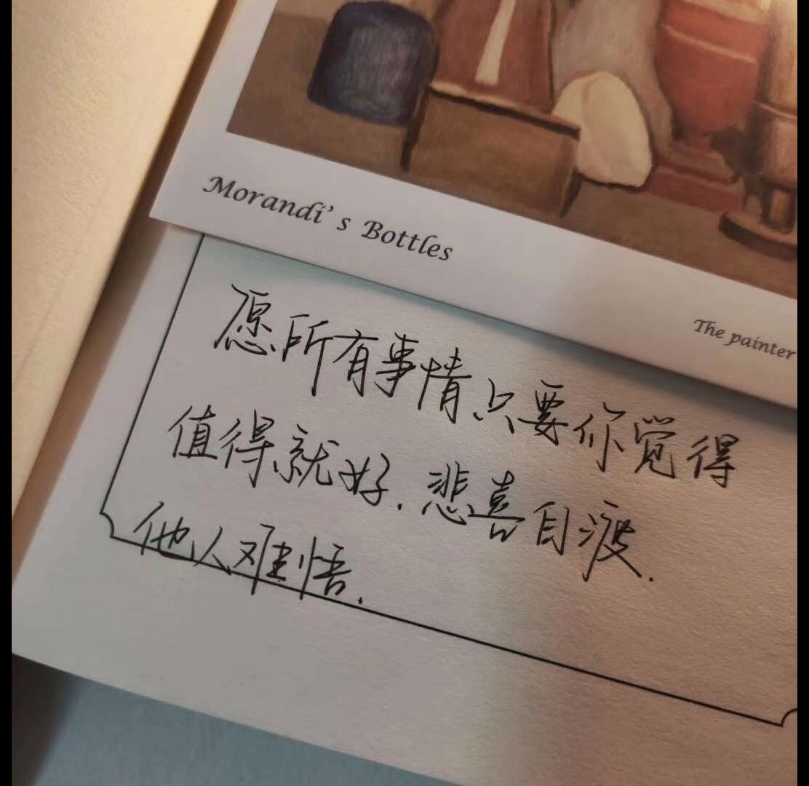 Morandi's Bottles
The painter
愿所有事情只要你觉得
值得就好.悲喜自渡.
他人难悟.